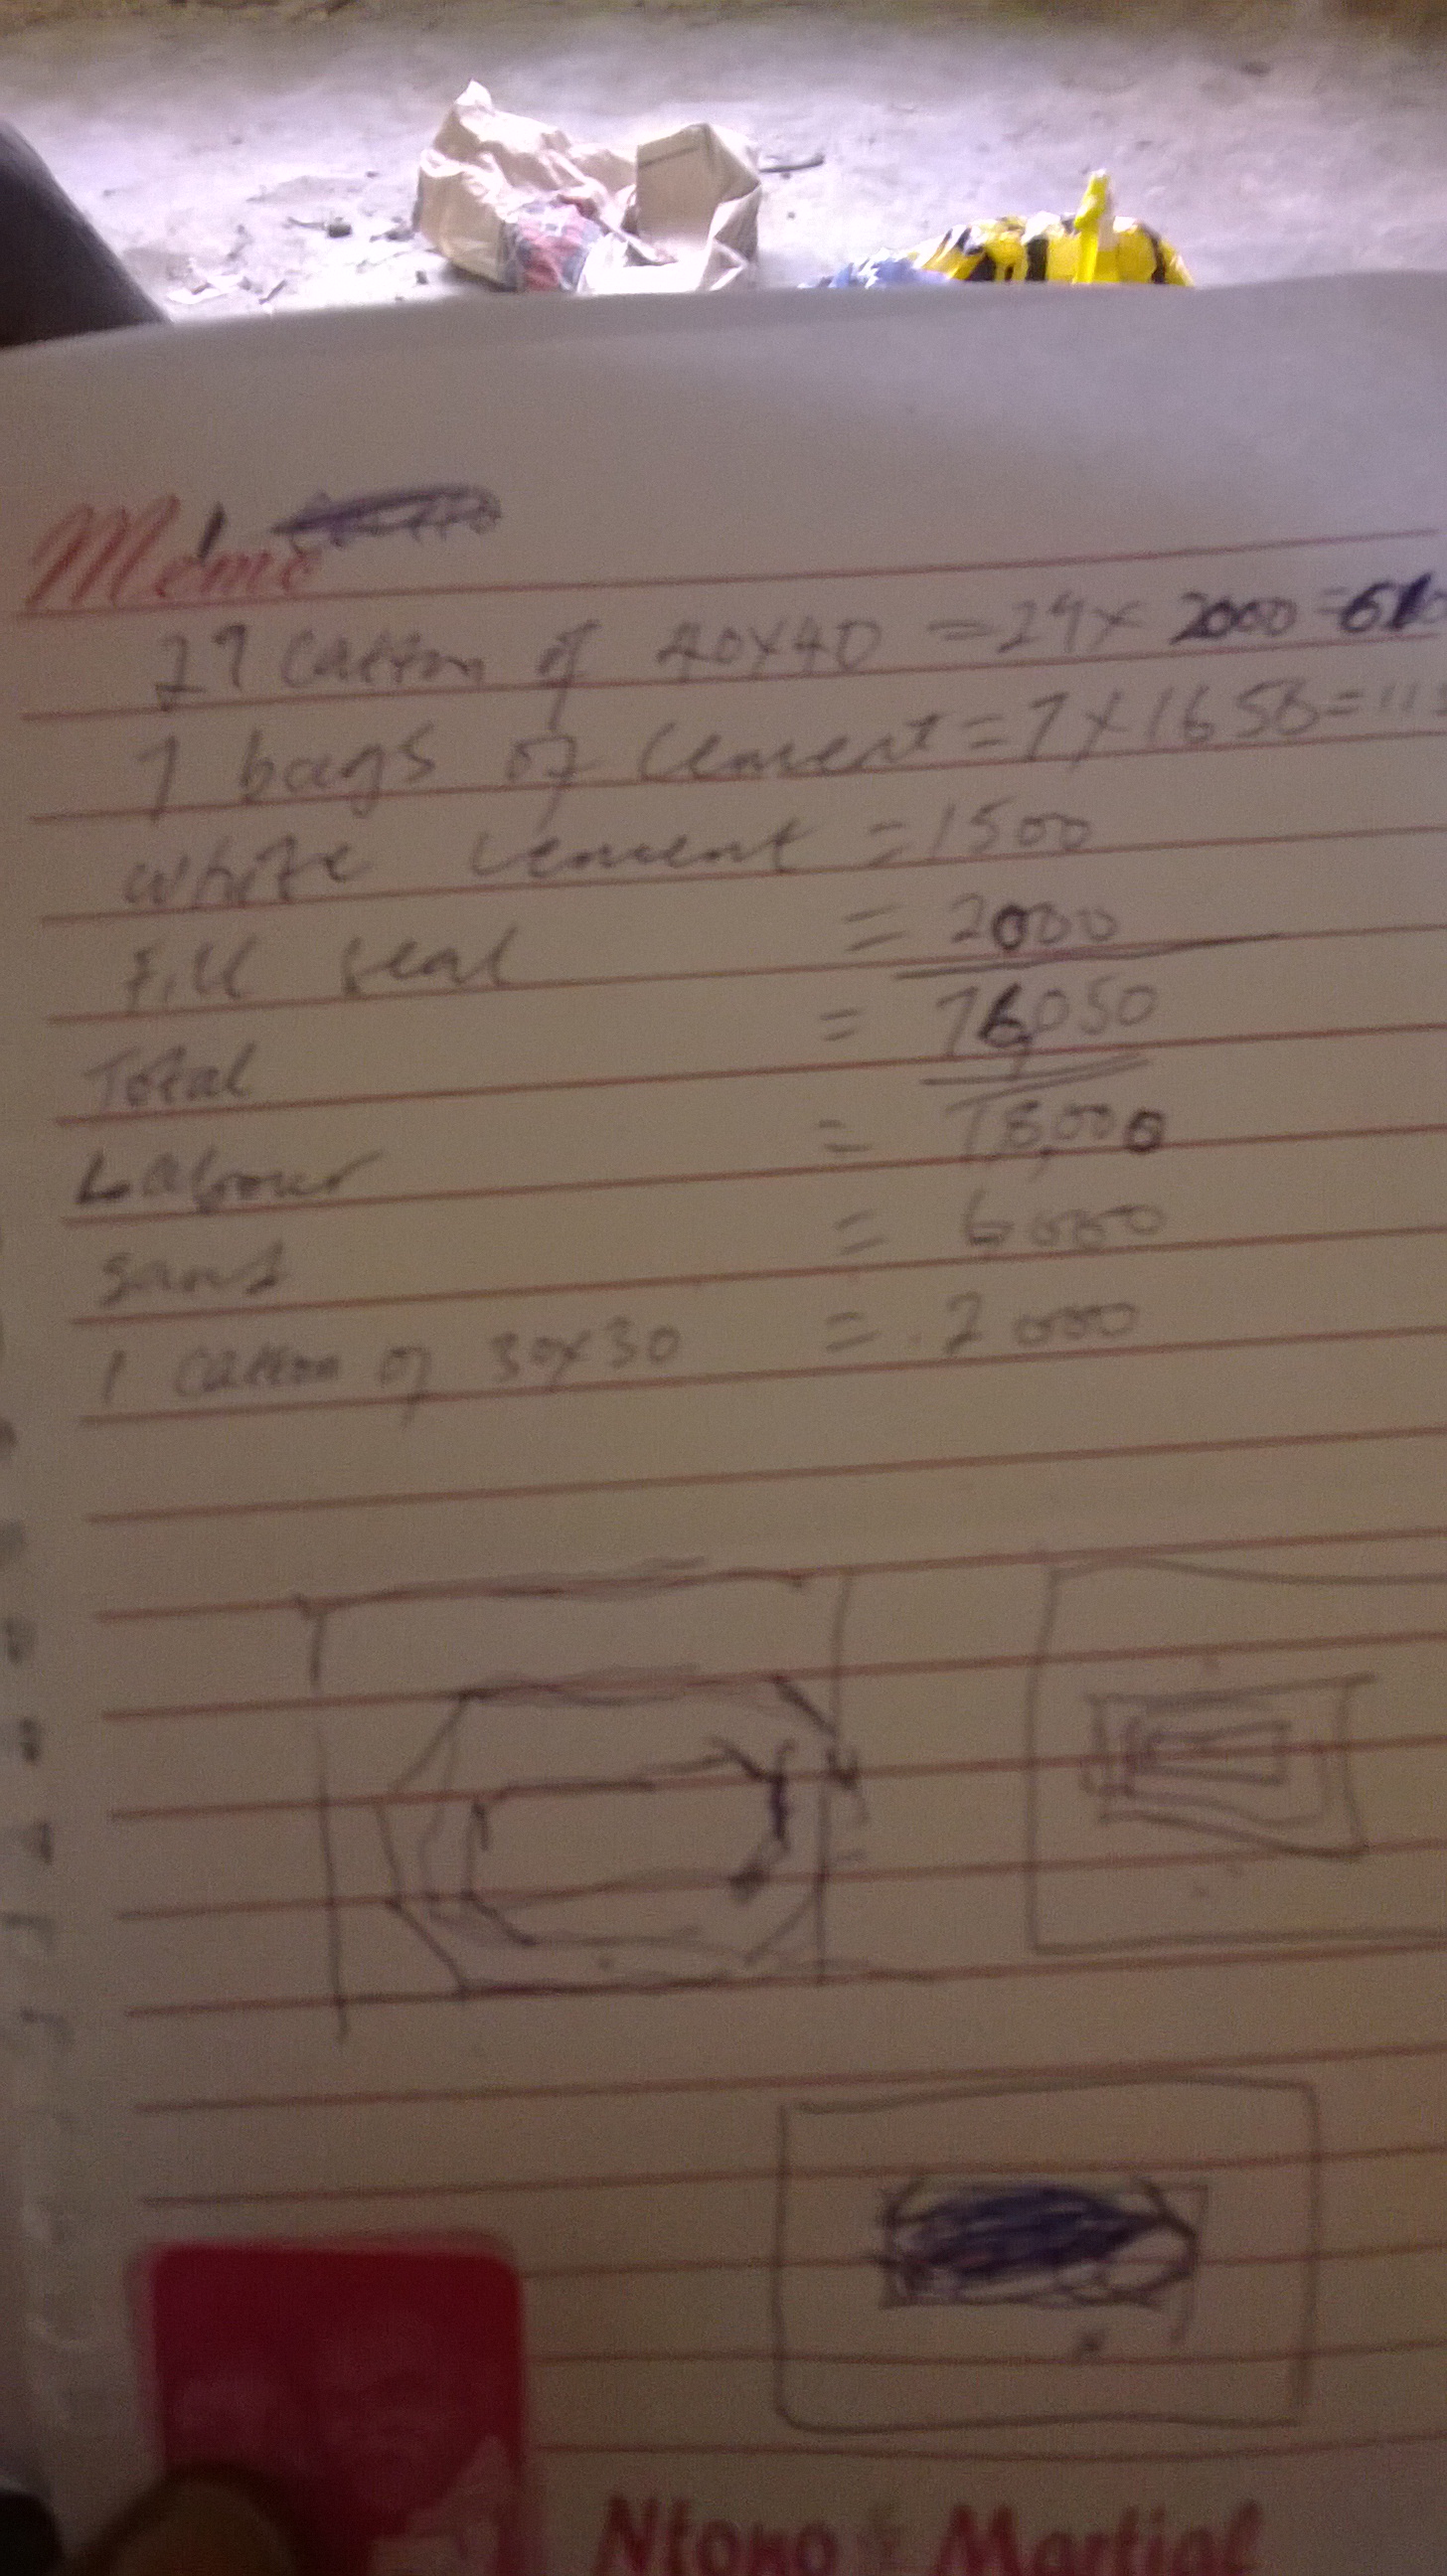 Memo
29 Catton of 40x40 = 29x 2000 = 610
7 bags of cement = 7x1650 = 11
white cement = 1500
Fill seal = 2000
Total = 76,050
Labour = 18,000
sand = 6000
1 catton of 30x30 = 2000
Ntoko & Martial